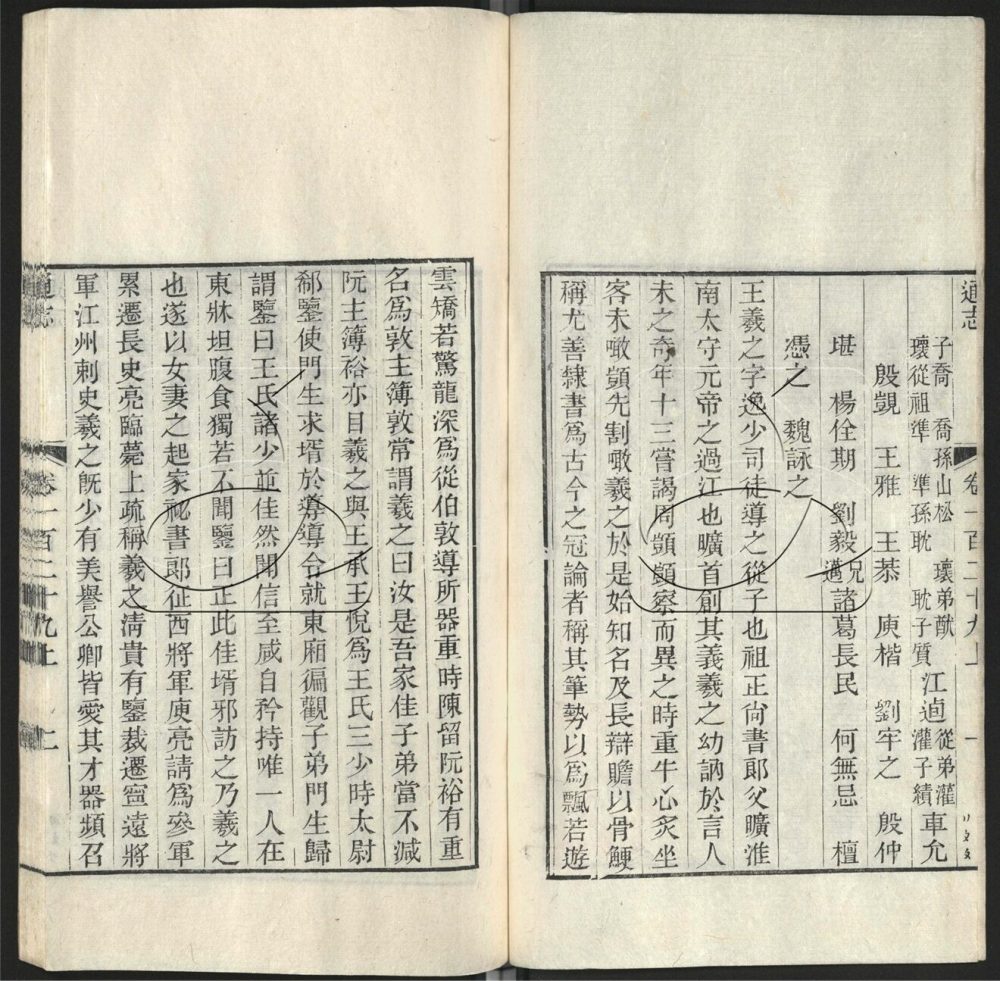 通志
卷一百二十九上
一
子喬 喬孫山松 瓌弟猷 江逌 從弟灌 車允
瓌從祖準 準孫耽 耽子質 灌子績
殷覬 王雅 王恭 庾楷 劉牢之 殷仲
堪 楊佺期 劉毅 兄邁 諸葛長民 何無忌 檀
憑之 魏詠之
王羲之字逸少司徒導之從子也祖正尙書郞父曠淮
南太守元帝之過江也曠首創其義羲之幼訥於言人
未之奇年十三嘗謁周顗顗察而異之時重牛心炙坐
客未噉顗先割噉羲之於是始知名及長辯贍以骨鯁
稱尤善隸書爲古今之冠論者稱其筆勢以爲飄若遊
雲矯若驚龍深爲從伯敦導所器重時陳留阮裕有重
名爲敦主簿敦常謂羲之曰汝是吾家佳子弟當不減
阮主簿裕亦目羲之與王承王悅爲王氏三少時太尉
郗鑒使門生求壻於導導令就東廂徧觀子弟門生歸
謂鑒曰王氏諸少並佳然聞信至咸自矜持唯一人在
東牀坦腹食獨若不聞鑒曰正此佳壻邪訪之乃羲之
也遂以女妻之起家祕書郞征西將軍庾亮請爲參軍
累遷長史亮臨薨上疏稱羲之淸貴有鑒裁遷寧遠將
軍江州刺史羲之旣少有美譽公卿皆愛其才器頻召
通志
卷一百二十九上
二